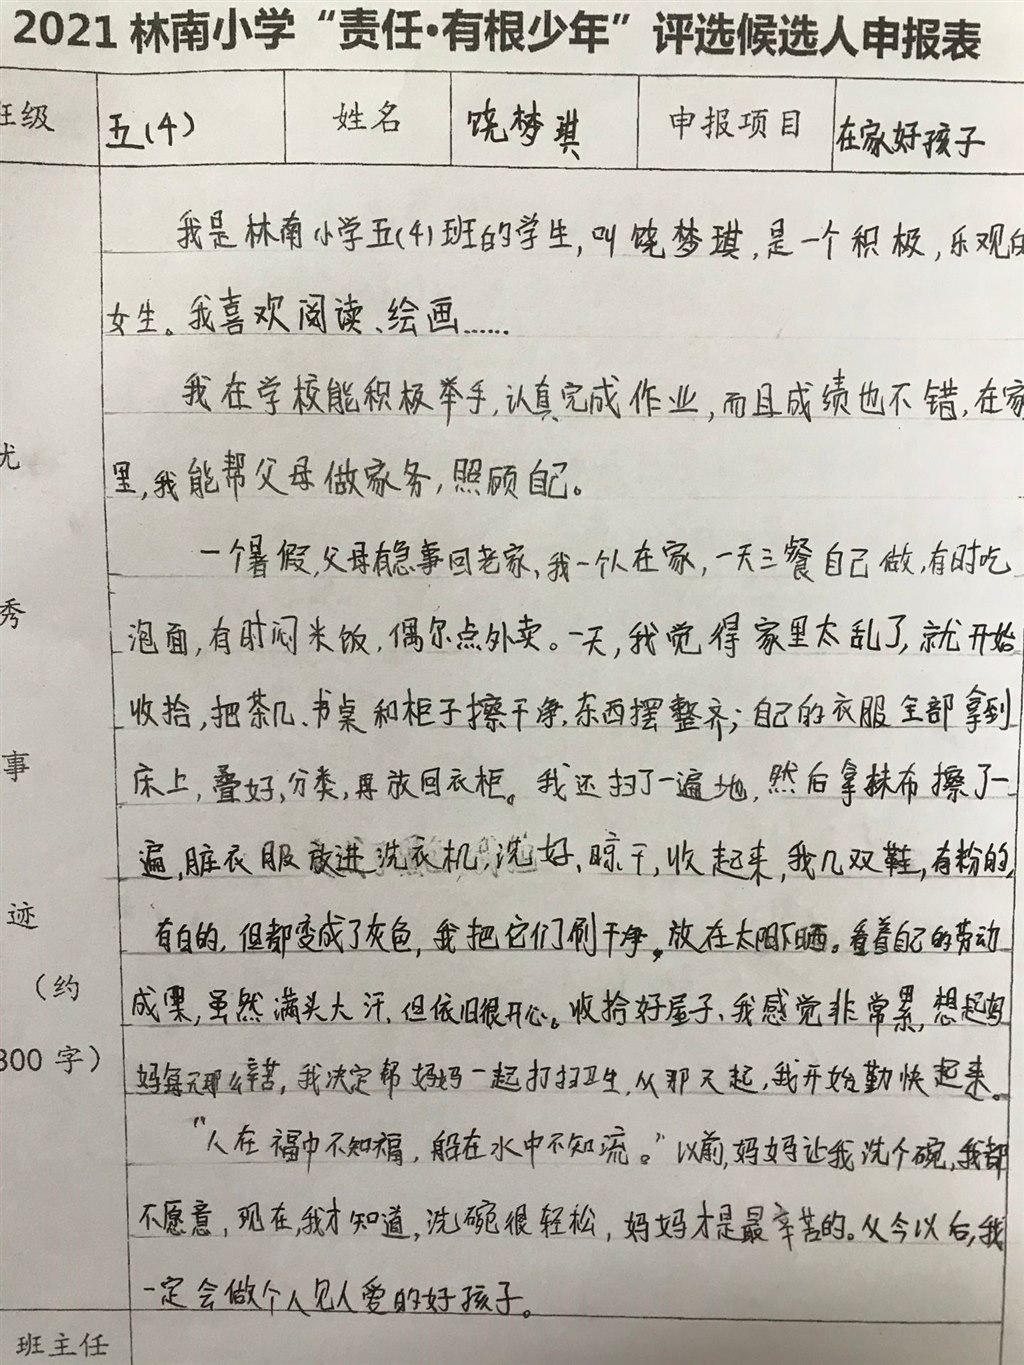 2021 林南小学“责任·有根少年”评选候选人申报表
班级 五(4) 姓名 饶梦琪 申报项目 在家好孩子
我是林南小学五(4)班的学生,叫饶梦琪,是一个积极,乐观的
女生。我喜欢阅读、绘画……
我在学校能积极举手,认真完成作业,而且成绩也不错,在家
里,我能帮父母做家务,照顾自己。
一个暑假,父母有急事回老家,我一个人在家,一天三餐自己做,有时吃
泡面,有时焖米饭,偶尔点外卖。一天,我觉得家里太乱了,就开始
收拾,把茶几、书桌和柜子擦干净,东西摆整齐;自己的衣服全部拿到
床上,叠好,分类,再放回衣柜。我还扫了一遍地,然后拿抹布擦了一
遍,脏衣服放进洗衣机,洗好,晾干,收起来,我几双鞋,有粉的,
有白的,但都变成了灰色,我把它们刷干净。放在太阳下晒。看着自己的劳动
成果,虽然满头大汗,但依旧很开心。收拾好屋子,我感觉非常累,想起妈
妈每天那么辛苦,我决定帮妈妈一起打扫卫生,从那天起,我开始勤快起来。
“人在福中不知福,船在水中不知流。”以前,妈妈让我洗个碗,我都
不愿意,现在,我才知道,洗碗很轻松,妈妈才是最辛苦的。从今以后,我
一定会做个人见人爱的好孩子。
优
秀
事
迹
(约
300字)
班主任